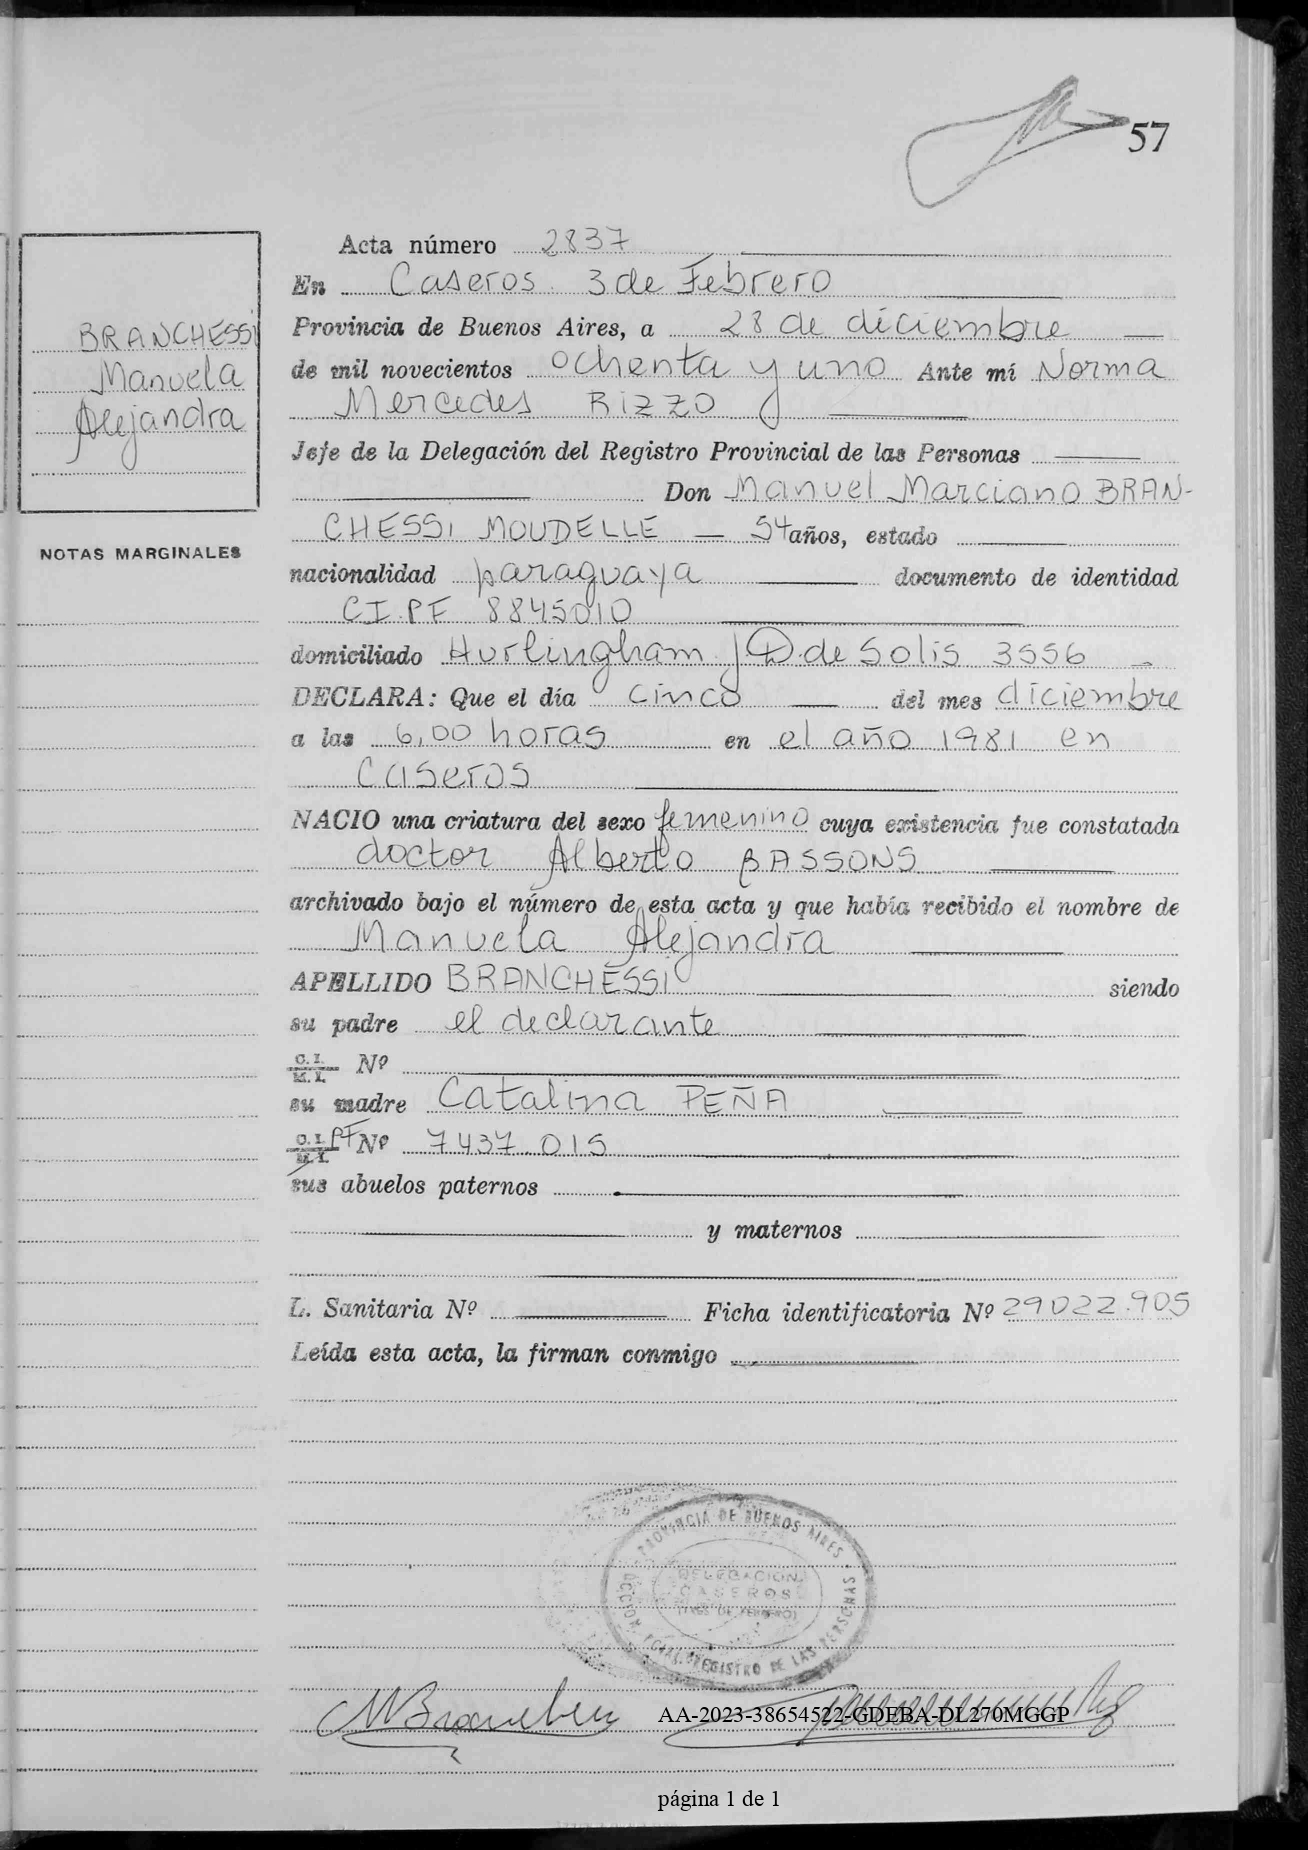 57
Acta número 2837
En Caseros. 3 de Febrero
Provincia de Buenos Aires, a 28 de diciembre
de mil novecientos ochenta y uno Ante mí Norma
Mercedes RIZZO
Jefe de la Delegación del Registro Provincial de las Personas
Don Manuel Marciano BRAN-
CHESSI MOUDELLE 54 años, estado
nacionalidad paraguaya documento de identidad
CI.PF 8845010
domiciliado Hurlingham J D. de Solis 3556
DECLARA: Que el día cinco del mes diciembre
a las 6,00 horas en el año 1981 en
Caseros
NACIO una criatura del sexo femenino cuya existencia fue constatada
doctor Alberto BASSONS
archivado bajo el número de esta acta y que había recibido el nombre de
Manuela Alejandra
APELLIDO BRANCHESSI siendo
su padre el declarante
C. I.
M. I. Nº
su madre Catalina PEÑA
C. I. PF Nº 7437.015
M. I.
sus abuelos paternos
y maternos
L. Sanitaria Nº Ficha identificatoria Nº 29022.905
Leída esta acta, la firman conmigo
BRANCHESSI
Manuela
Alejandra
NOTAS MARGINALES
PROVINCIA DE BUENOS AIRES
DELEGACION
CASEROS
(TRES DE FEBRERO)
REGISTRO DE LAS PERSONAS
AA-2023-38654522-GDEBA-DL270MGGP
página 1 de 1